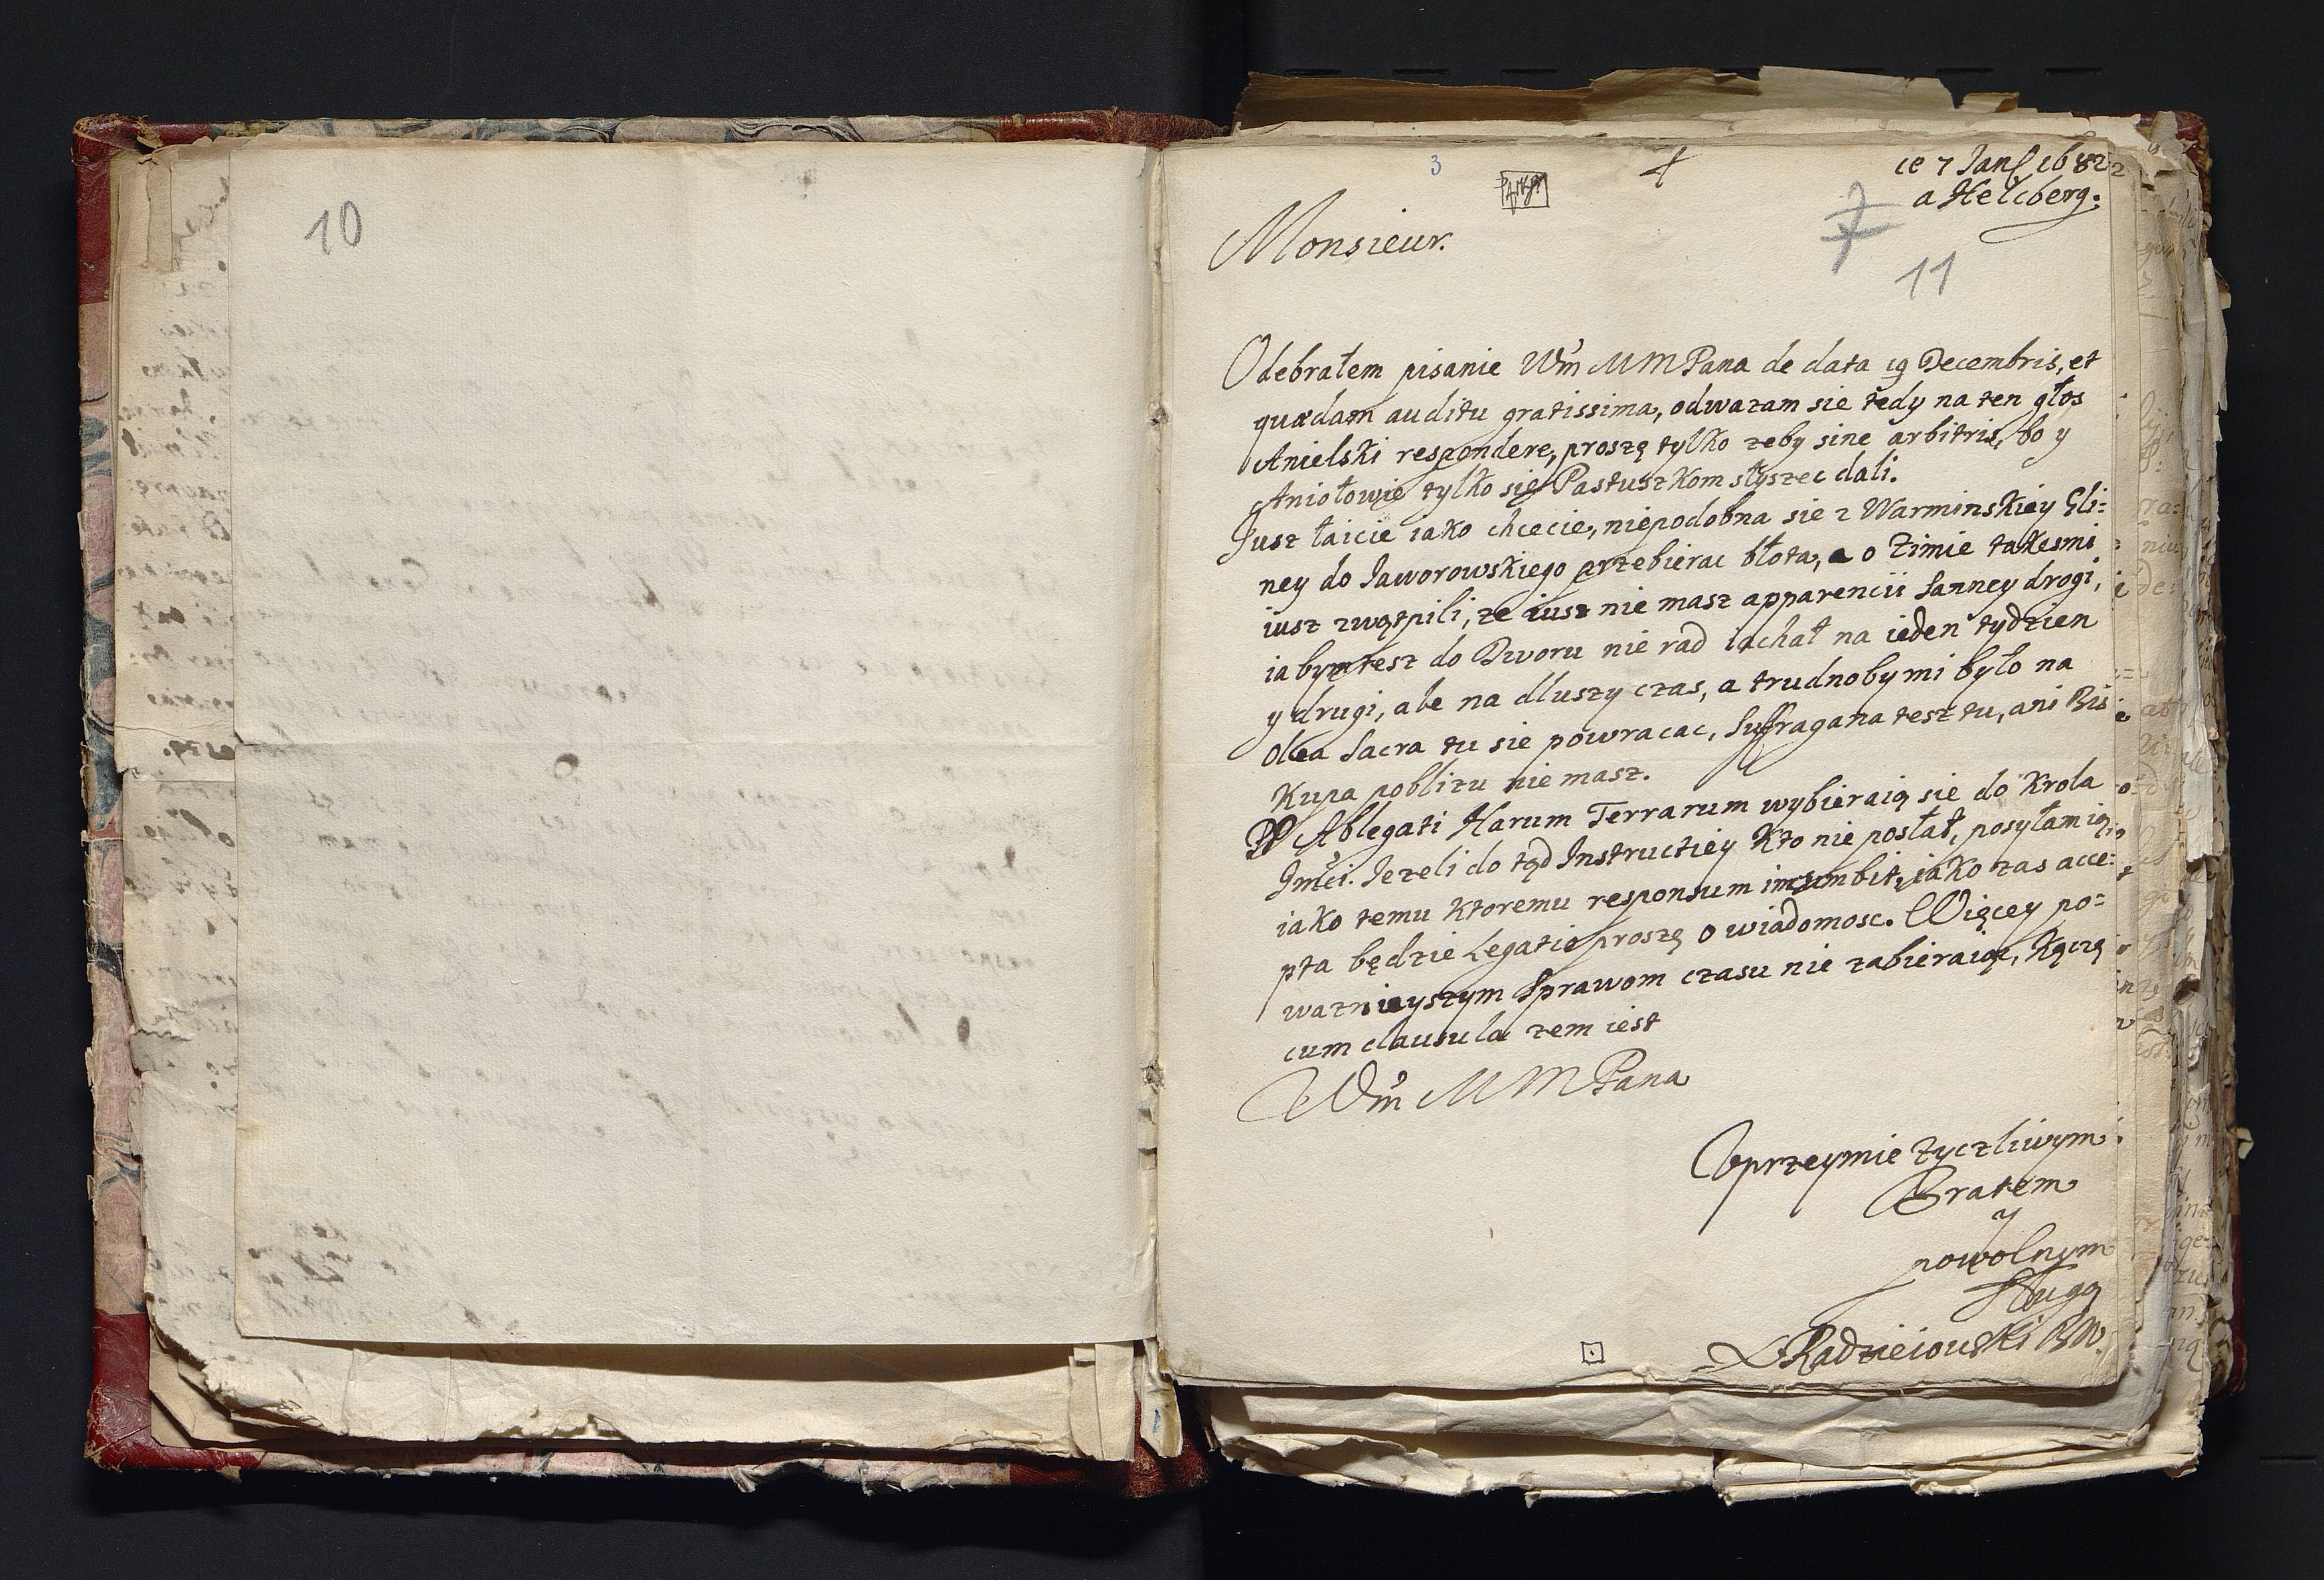 10
3
4
ce 7 Janſ 1682
a Helcberg.
7
11
Monsieur.
Odebrałem pisanie Wm̃ M M Pana de data 19 Decembris, et
quædam auditu gratissima, odwazam sie tedy na ten głos
Anielski respondere, proszę tylko zeby sine arbitris, bo y
Aniołowie tylko się Pastuszkom słyszec dali.
Jusz łaicie iako chcecie, niepodobna sie z Warminskiey Gli:
ney do Jaworowskiego przebierac błota, a o Zimie takesmi
iusz zwątpili, ze iusz nie masz apparencii Sanney drogi,
ia bym tesz do Dworu nie rad iachał na ieden tydzien
y drugi, ale na dluszy czas, a trudnoby mi było na
Olea Sacra tu sie powracac, Suffragana tesz tu, ani Bis
kupa poblizu nie masz.
PP Ablegati Harum Terrarum wybieraią sie do Krola
Jmći. Jezeli do tąd Instructiey kto nie posłał, posyłam ią,
iako temu ktoremu responsum incumbit, iako zas acce:
pta będzie Legatio proszę o wiadomosc. Więcey po:
waznieyszym Sprawom czasu nie zabieraiąc, kączę
cum clausula zem iest
Wm̃ M M Pana
Uprzeymie zyczliwym
Bratem
y
powolnym
Sługą
Radzieiouski BW.